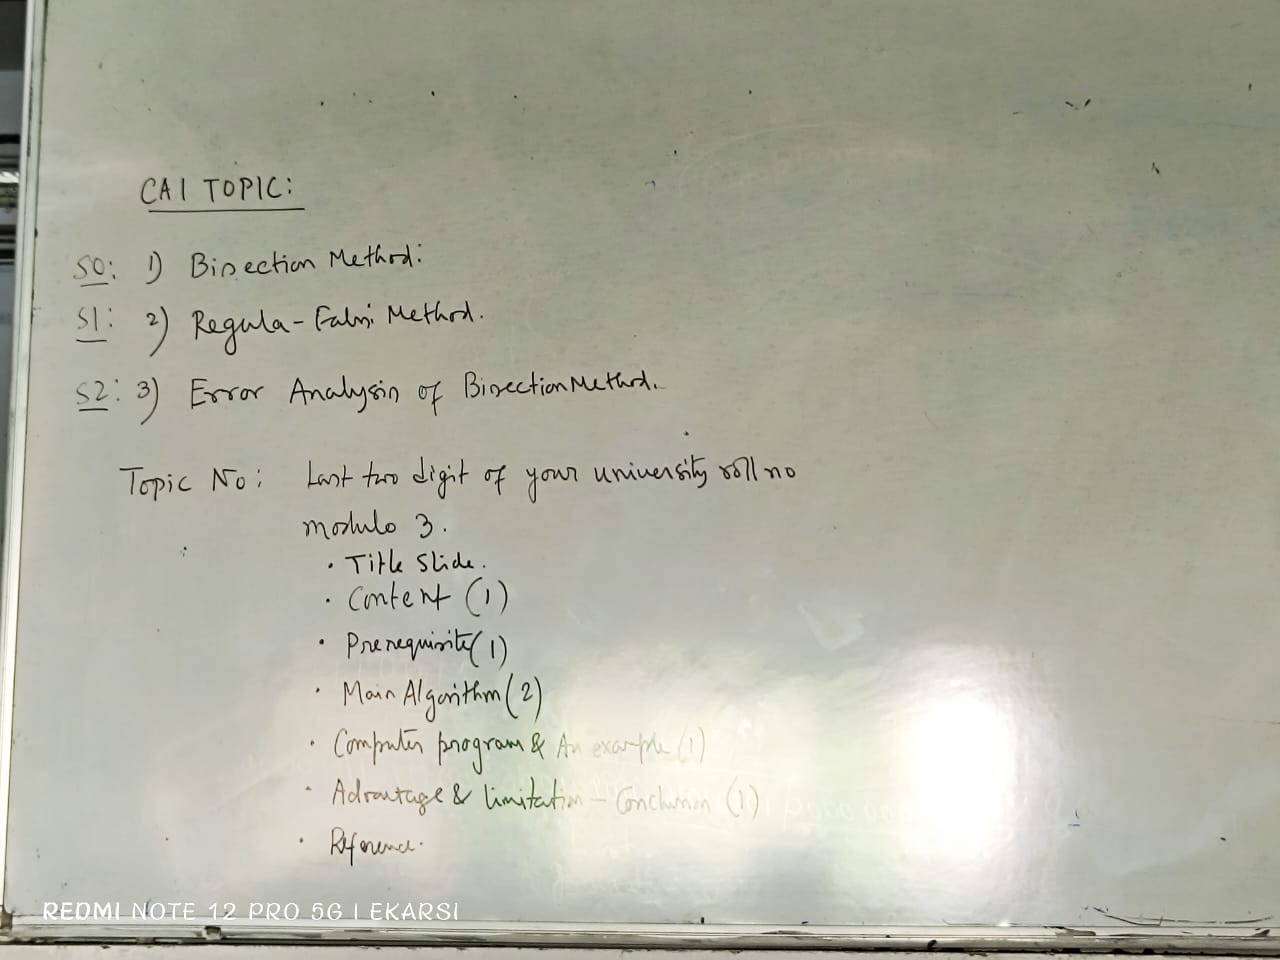 CA1 TOPIC:
S0: 1) Bisection Method:
S1: 2) Regula-Falsi Method.
S2: 3) Error Analysis of Bisection Method.
Topic No: Last two digit of your university roll no
modulo 3.
• Title Slide.
• Content (1)
• Prerequisite (1)
• Main Algorithm (2)
• Computer program & An example (1)
• Advantage & limitation - Conclusion (1)
• Reference.
REDMI NOTE 12 PRO 5G | EKARSI